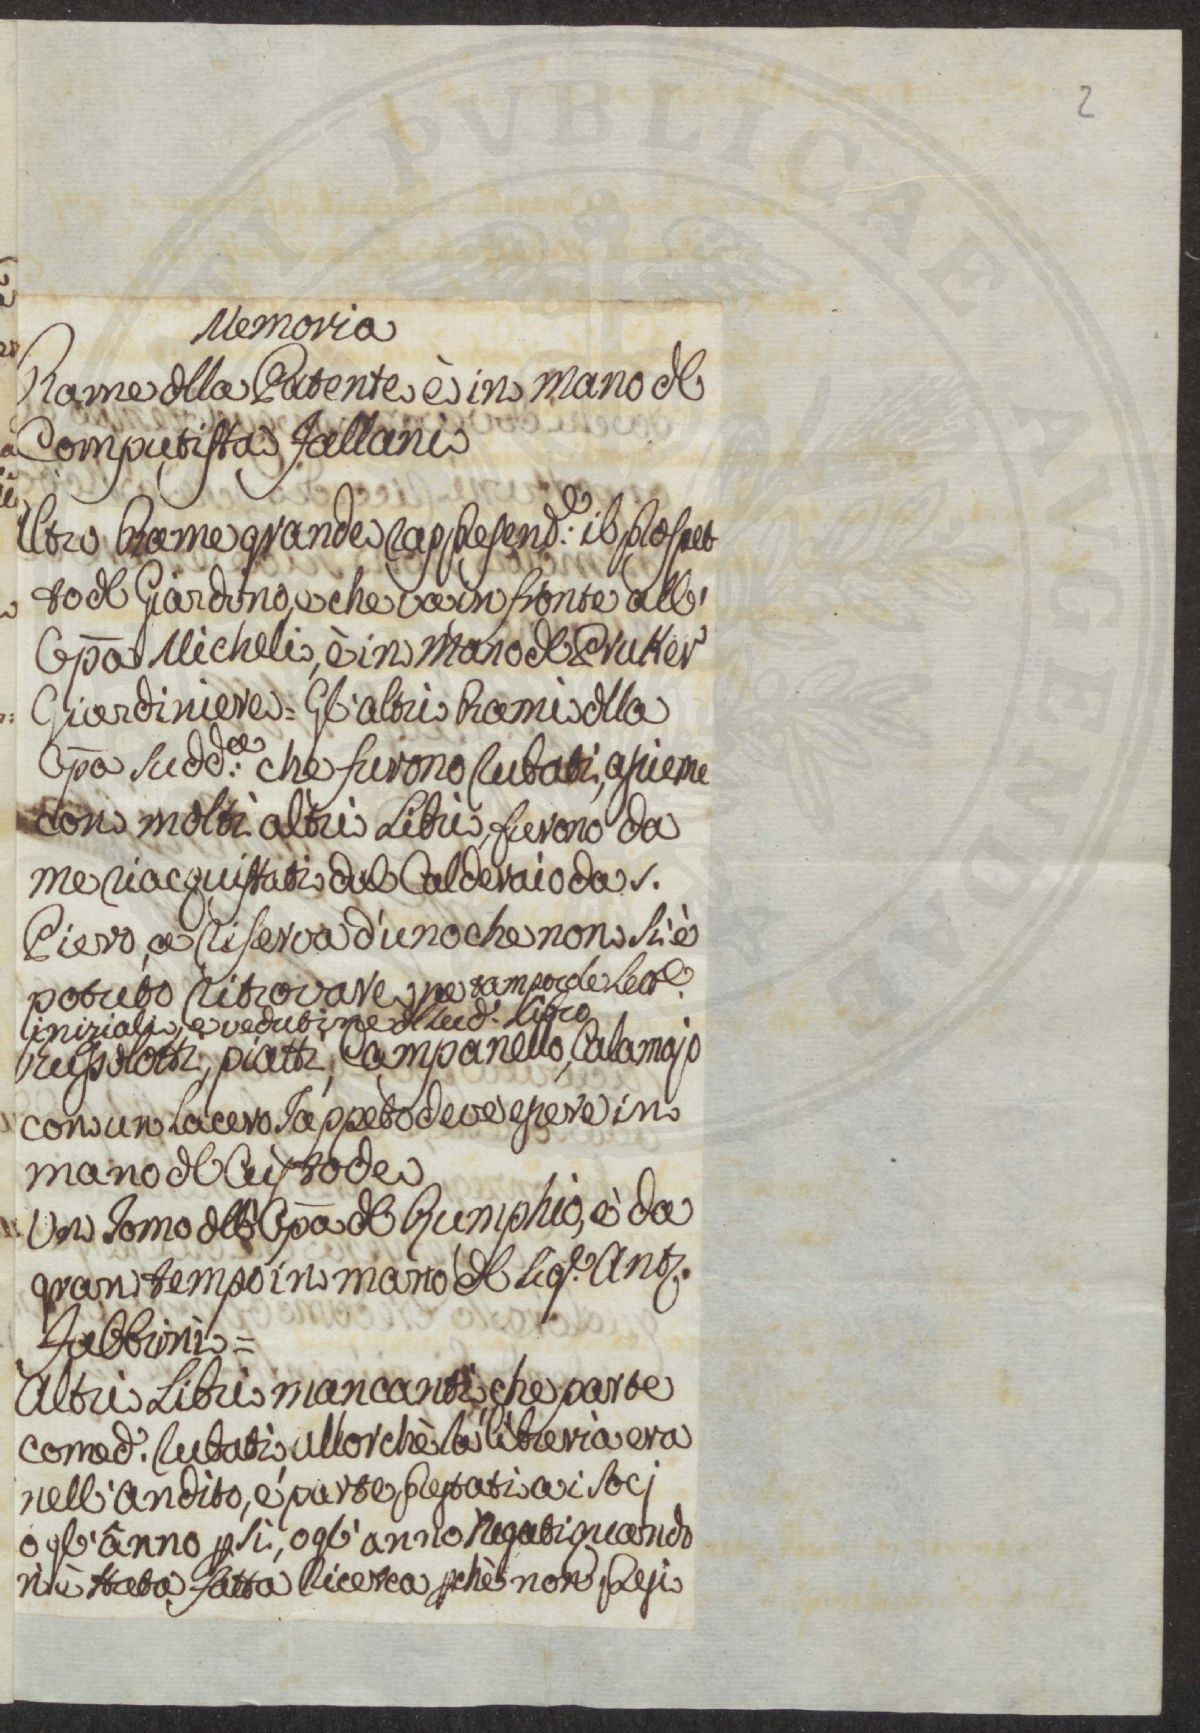 2
Memoria
Rame dlla Patente è in mano dl
Computista Fallani
Altro Rame grande rappresend.e il prospet
to dl Giardino, e che va in fronte all'
Opa Micheli, è in mano dl Pruker
Giardiniere = Gl'altri Rami dlla
Opa Sudd.a che furono rubati, assieme
con molti altri Libri, furono da
me riacquistati dal Calderaio da S.
Piero, a riserva d'uno che non si è
potuto ritrovare, ne tampoco le Lett.e
iniziali, e vedutine dl Sud.o Libro
Bussolotti, piatti, Campanello, Calamajo
con un lacero Tappeto deve essere in
mano dl Custode
Un Tomo dll'Opa dl Rumphio, è da
gran tempo in mano dl Sig.e Ant.o
Fabbrini =
Altri Libri mancanti, che parte
come d. rubati, allorchè la libreria era
nell'andito, e parte prestati a i Socj
o gl'ànno psi, o gl'anno negati quando
n'è stata fatta ricerca pchè non resi
PVBLICAE
AVGE